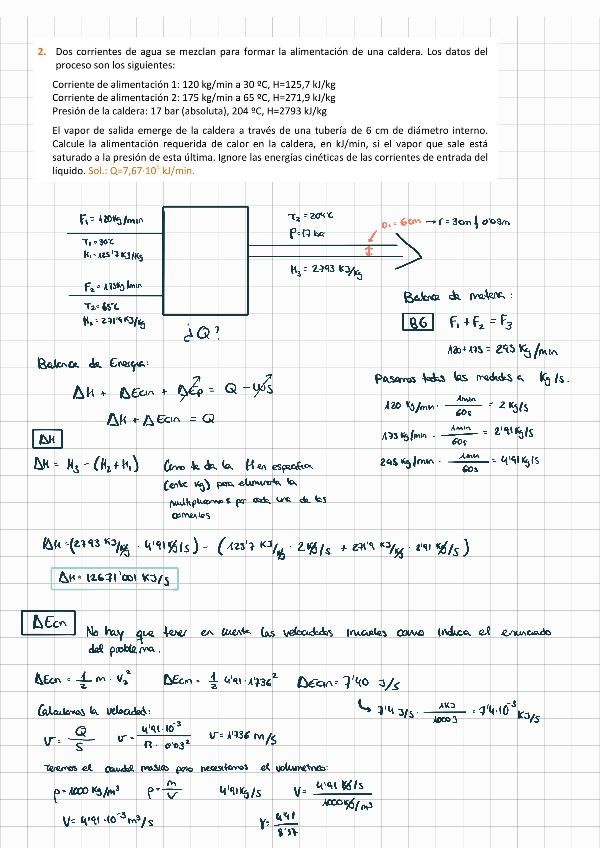 2. Dos corrientes de agua se mezclan para formar la alimentación de una caldera. Los datos del
proceso son los siguientes:
Corriente de alimentación 1: 120 kg/min a 30 ºC, H=125,7 kJ/kg
Corriente de alimentación 2: 175 kg/min a 65 ºC, H=271,9 kJ/kg
Presión de la caldera: 17 bar (absoluta), 204 ºC, H=2793 kJ/kg
El vapor de salida emerge de la caldera a través de una tubería de 6 cm de diámetro interno.
Calcule la alimentación requerida de calor en la caldera, en kJ/min, si el vapor que sale está
saturado a la presión de esta última. Ignore las energías cinéticas de las corrientes de entrada del
líquido. Sol.: Q=7,67·10⁵ kJ/min.
F₁ = 120 kg/min
T₁ = 30ºC
H₁ = 125'7 KJ/Kg
F₂ = 175 kg/min
T₂ = 65ºC
H₂ = 271'9 KJ/kg
¿Q?
T₂ = 204ºC
P = 17 bar
Di = 6cm → r = 3cm 0'03m
H₃ = 2793 KJ/kg
Balance de materia:
BG F₁ + F₂ = F₃
120 + 175 = 295 Kg/min
Pasamos todas las medidas a Kg/s.
120 Kg/min · 1min/60s = 2 Kg/s
175 Kg/min · 1min/60s = 2'91 Kg/s
295 Kg/min · 1min/60s = 4'91 Kg/s
Balance de Energía:
ΔH + ΔEcin + ΔEp = Q - Ws
ΔH + ΔEcin = Q
ΔH
ΔH = H₃ - (H₂ + H₁)
Como te da la H en especifica
(ente kg) para eliminarla la
multiplicamos por cada una de las
corrientes
ΔH = (2793 KJ/kg · 4'91 Kg/s) - (125'7 KJ/kg · 2 Kg/s + 271'9 KJ/kg · 2'91 Kg/s)
ΔH = 12671'001 KJ/s
ΔEcn
No hay que tener en cuenta las velocidades iniciales como indica el enunciado
del problema.
ΔEcn = 1/2 m · V₂² ΔEcn = 1/2 4'91 · 1'736² ΔEcin = 7'40 J/s
↳ 7'4 J/s · 1KJ/1000J = 7'4·10⁻³ KJ/s
Calculamos la velocidad:
V = Q/S V = 4'91·10⁻³/π · 0'03² V = 1'736 m/s
Tenemos el caudal masico pero necesitamos el volumetrico:
ρ = 1000 Kg/m³ ρ = m/V 4'91 Kg/s V = 4'91 Kg/s/1000 Kg/m³
V = 4'91 · 10⁻³ m³/s